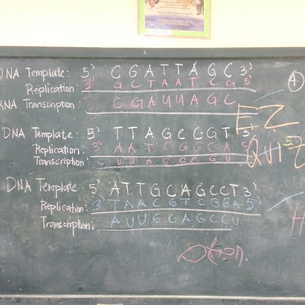 DNA Template: 5' C G A T T A G C 3'
Replication: 3' G C T A A T C G 5'
RNA Transcription: C G A U U A G C
④
EZ
DNA Template: 5' T T A G C C G T 3'
Replication: 3' A A T C G G C A 5'
Transcription: U U A G C C G U
QUIZ
DNA Template: 5' A T T G C A G C C T 3'
Replication: 3' T A A C G T C G G A 5'
Transcription: A U U G C A G C C U